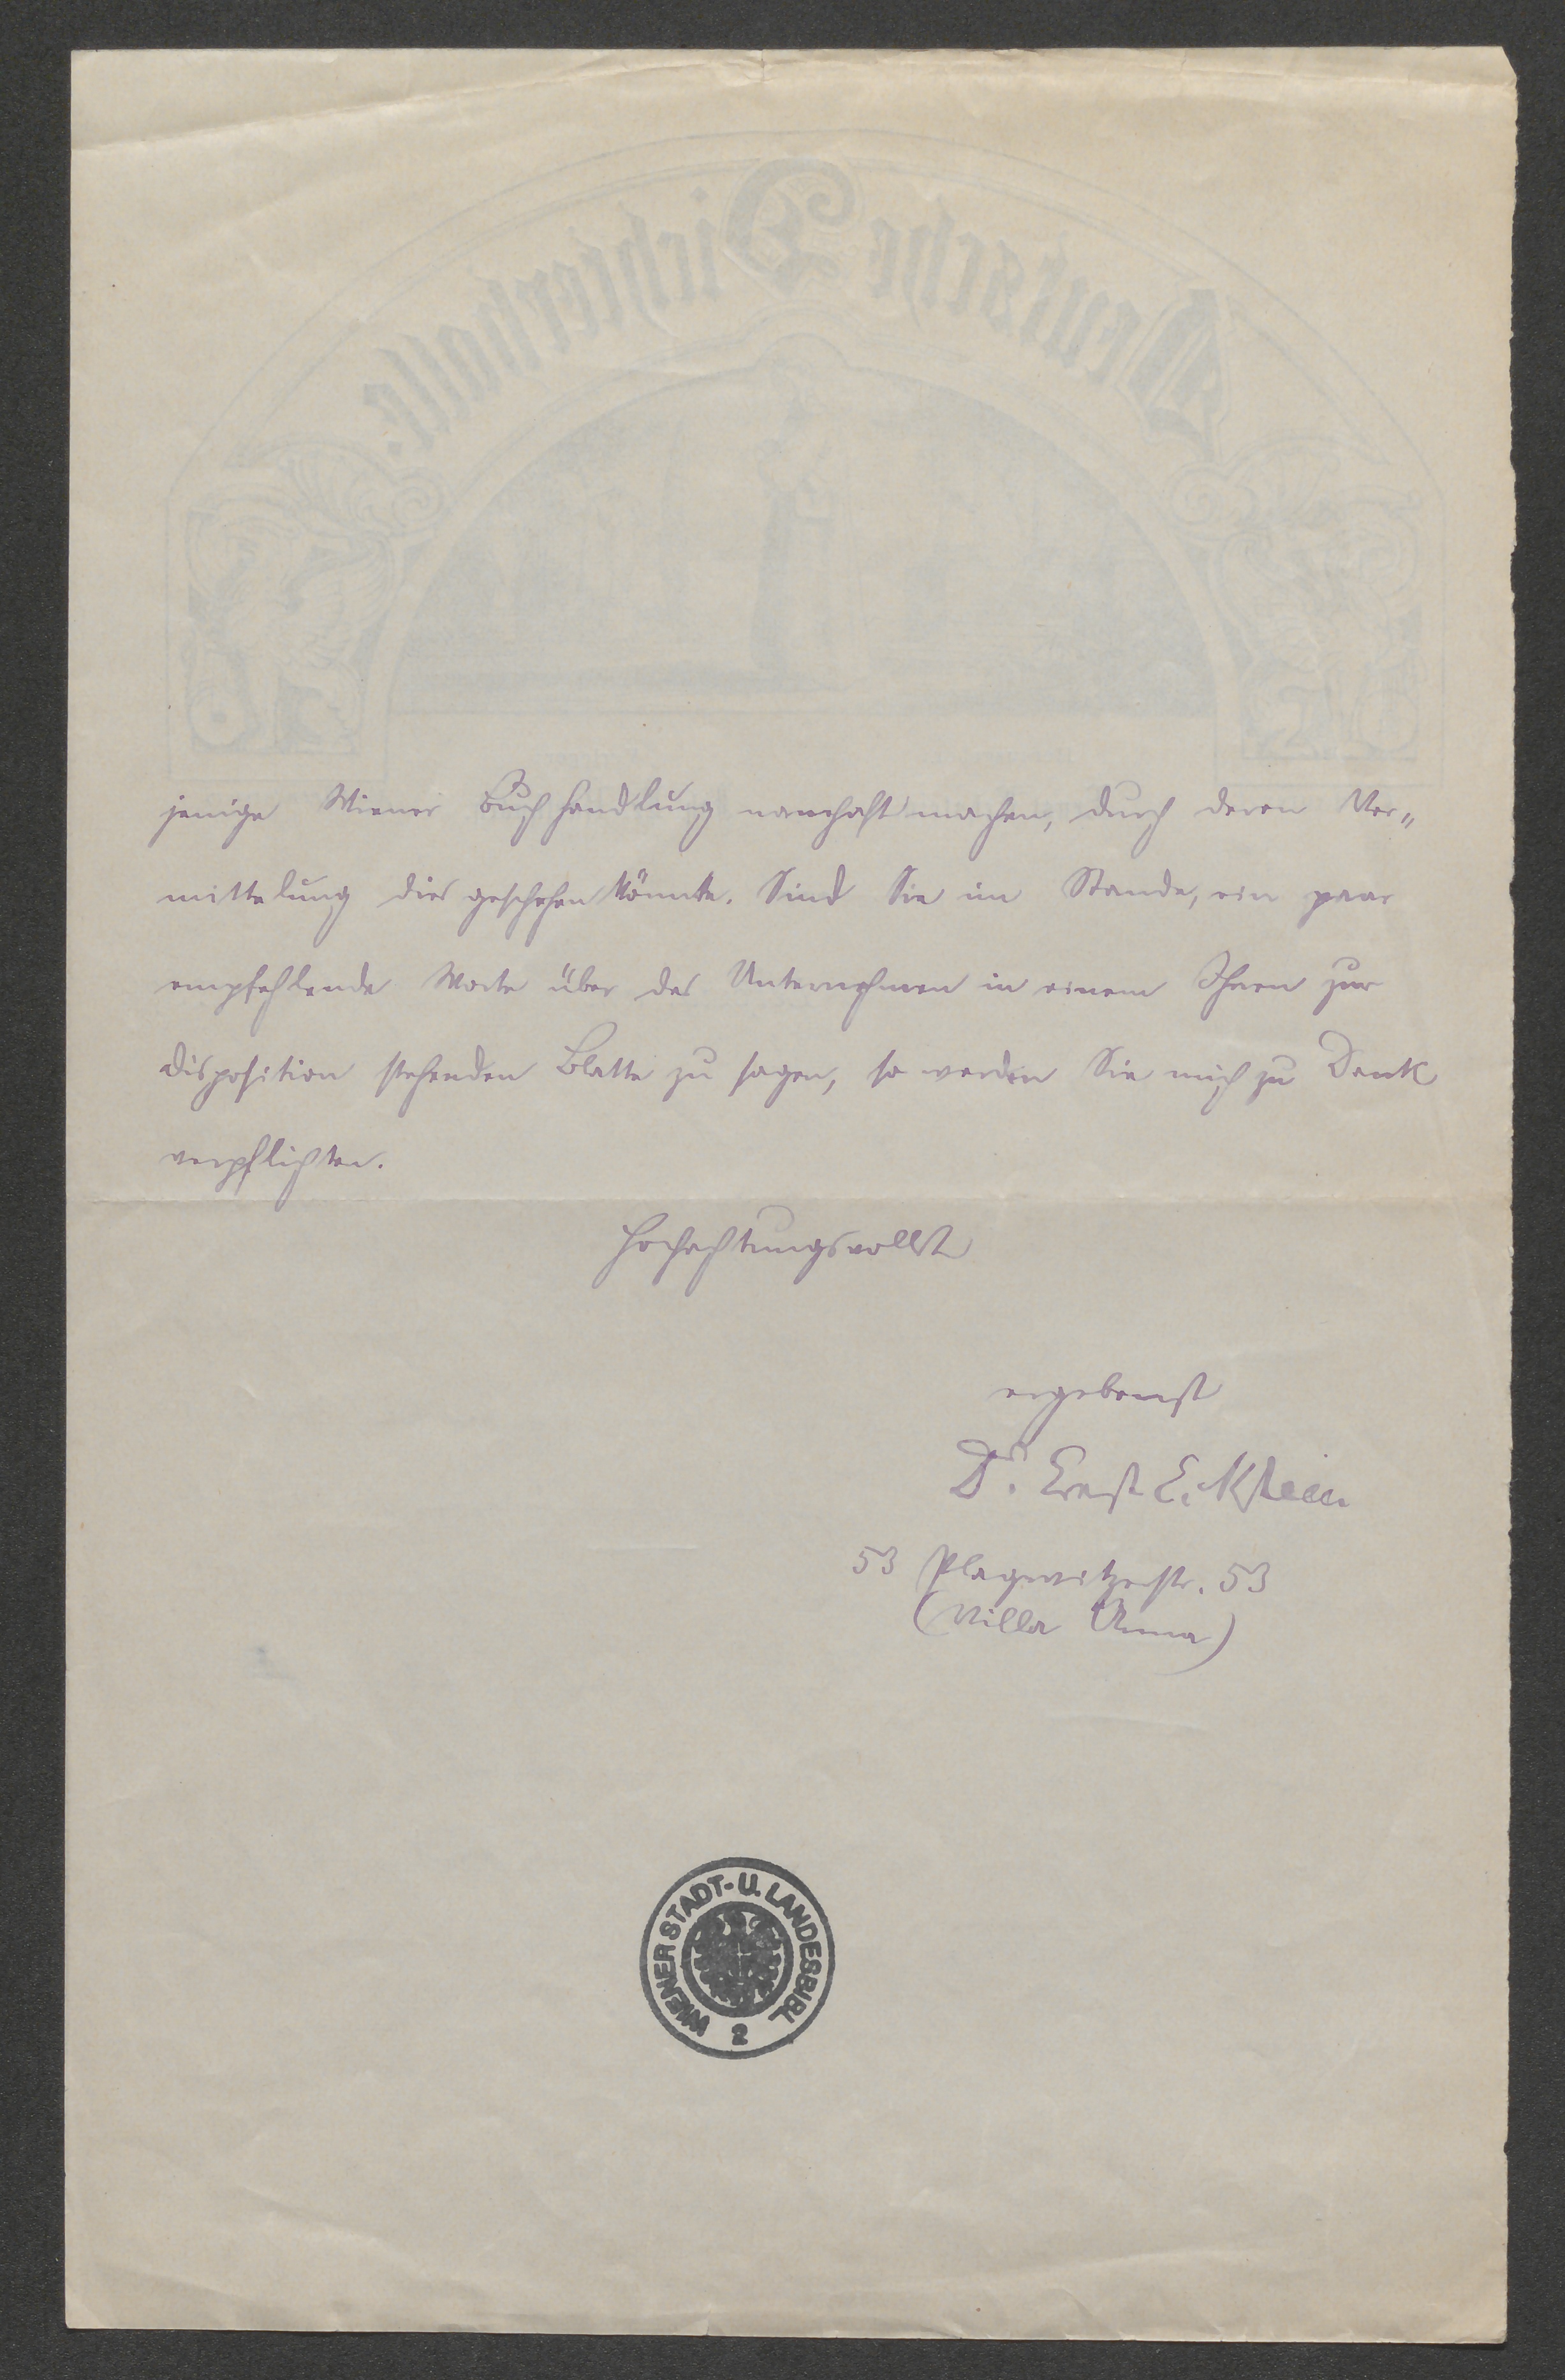 Deutsche Dichterhalle.
jenige Wiener Buchhandlung namhaft machen, durch deren Ver„
mittelung dies geschehen könnte. Sind Sie im Stande, ein paar
empfehlende Worte über das Unternehmen in einem Ihnen zur
Disposition stehenden Blatte zu sagen, so werden Sie mich zu Dank
verpflichten.
Hochachtungsvollst
ergebenst
Dr. Ernst Eckstein
53 Plagwitzerstr. 53
(Villa Anna)
WIENER STADT-U. LANDESBIBL
2